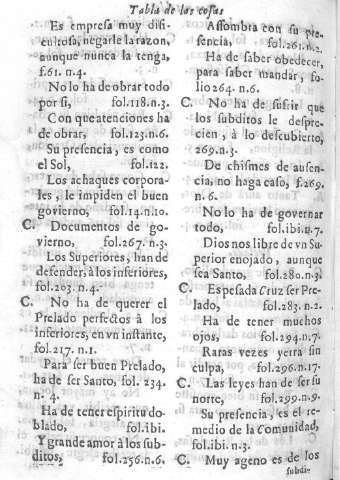 Tabla de las cosas
Es empresa muy difi-
cultosa, negarle la razon,
aunque nunca la tenga,
f.61. n.4.
No lo ha de obrar todo
por si, fol.118.n.3.
Con que atenciones ha
de obrar, fol.123.n.6.
Su presencia, es como
el Sol, fol.122.
Los achaques corpora-
les, le impiden el buen
govierno, fol.14.n.10.
C. Documentos de go-
vierno, fol.267. n.3.
Los Superiores, han de
defender, à los inferiores,
fol.203. n.4.
C. No ha de querer el
Prelado perfectos à los
inferiores, en vn instante,
fol.217. n.1.
Para ser buen Prelado,
ha de ser Santo, fol. 234.
n. 4.
Ha de tener espiritu do-
blado, fol.ibi.
Y grande amor à los sub-
ditos, fol.256.n.6.
Assombra con su pre-
sencia, fol.261.n.2.
Ha de saber obedecer,
para saber mandar, fo-
lio 264. n.6.
C. No ha de sufrir que
los subditos le despre-
cien, à lo descubierto,
269.n.3.
De chismes de ausen-
cia, no haga caso, f.269.
n. 6.
No lo ha de governar
todo, fol.ibi.n.7.
Dios nos libre de vn Su-
perior enojado, aunque
sea Santo, fol.280.n.3.
C. Es pesada Cruz ser Pre-
lado, fol.283. n.2.
Ha de tener muchos
ojos, fol.294.n.7.
Raras vezes yerra sin
culpa, fol.296.n.17.
C. Las leyes han de ser su
norte, fol.299.n.9.
Su presencia, es el re-
medio de la Comunidad,
fol.ibi. n.3.
C. Muy ageno es de los
subdi-